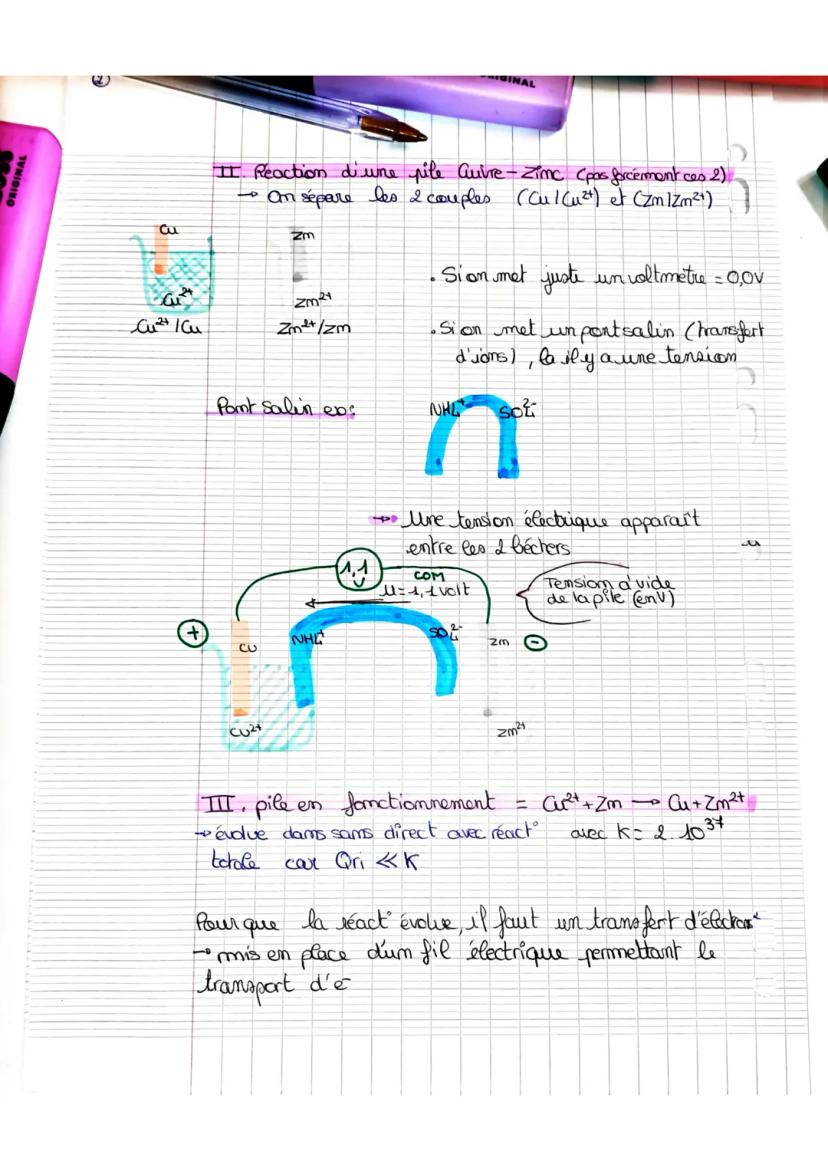 (2)
ORIGINAL
ORIGINAL
II. Réaction d'une pile Cuivre-Zinc (pas forcément ces 2)
→ On sépare les 2 couples (Cu/Cu²⁺) et (Zn/Zn²⁺)
Cu
Zn
Cu²⁺
Zn²⁺
Cu²⁺/Cu
Zn²⁺/Zn
. Si on met juste un voltmètre = 0,0V
. Si on met un pont salin (transfert
d'ions), la il y a une tension
Pont Salin ex:
NH₄⁺
SO₄²⁻
→ Une tension électrique apparaît
entre les 2 béchers
1,1
V
COM
U=1,1 volt
Tension à vide
de la pile (en V)
+
Cu
NH₄⁺
SO₄²⁻
Zn
-
Cu²⁺
Zn²⁺
III. pile en fonctionnement = Cu²⁺ + Zn → Cu + Zn²⁺
→ évolue dans sans direct avec réact° avec K = 2.10³⁷
totale car Qri << K
Pour que la réact° évolue, il faut un transfert d'électrons
→ mis en place d'un fil électrique permettant le
transport d'e⁻